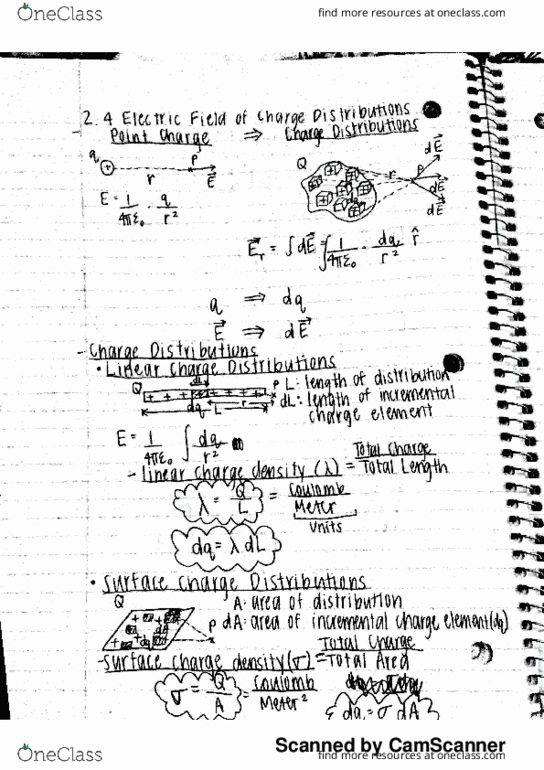 OneClass
find more resources at oneclass.com
2.4 Electric Field of Charge Distributions
Point Charge ⇒ Charge Distributions
q + r P E⃗
Q r P dE⃗ dE⃗ dE⃗
E = 1/4πε₀ · q/r²
E⃗r = ∫dE⃗ = ∫ 1/4πε₀ · dq/r² r̂
q ⇒ dq
E⃗ ⇒ dE⃗
- Charge Distributions
• Linear Charge Distributions
Q dL P L: length of distribution
dq L r dL: length of incremental
charge element
E = 1/4πε₀ ∫ dq/r²
- linear charge density (λ) = Total Charge/Total Length
λ = Q/L = Coulomb/Meter
units
dq = λ dL
• Surface Charge Distributions
Q A: area of distribution
P dA: area of incremental charge element (dq)
dA
dq
- Surface charge density (σ) = Total Charge/Total Area
σ = Q/A = Coulomb/Meter²
dq = σ dA
Scanned by CamScanner
OneClass
find more resources at oneclass.com